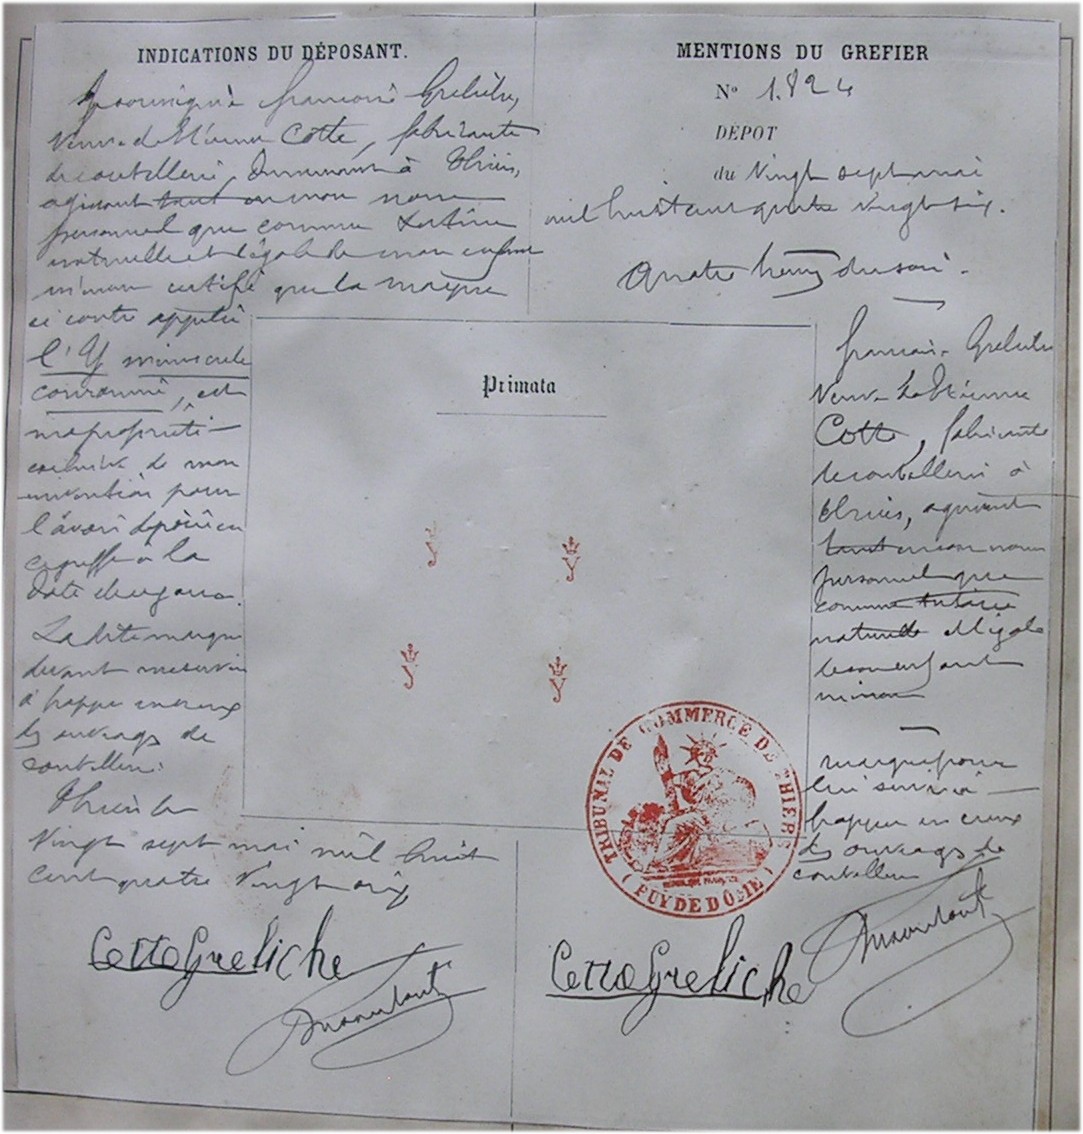 INDICATIONS DU DÉPOSANT.
Je soussignée françoise Greliche,
Veuve de Etienne Cotte, fabricante
de coutellerie, demeurant à Thiers,
agissant tant en mon nom
personnel que comme tutrice
naturelle et légale de mon enfant
mineur certifie que la marque
ci contre appelée
l'Y minuscule
couronné, est
ma propriété
exclusive de mon
invention pour
l'avoir déposée au
greffe à la
date de ce jour.
La dite marque
devant me servir
à frapper en creux
les ouvrages de
coutellerie.
Thiers le
Vingt sept mai mil huit
cent quatre Vingt six
Cotte Greliche
MENTIONS DU GREFIER
N° 1.824
DÉPOT
du Vingt sept mai
mil huit cent quatre vingt six.
Quatre heures du soir.
françoise Greliche
Veuve de Etienne
Cotte, fabricante
de coutellerie à
Thiers, agissant
tant en son nom
personnel que
comme tutrice
naturelle et légale
de son enfant
mineur
marque pour
lui servir à
frapper en creux
les ouvrages de
coutellerie
Cotte Greliche
Primata
Y Y
Y Y
TRIBUNAL DE COMMERCE DE THIERS
(PUY DE DÔME)